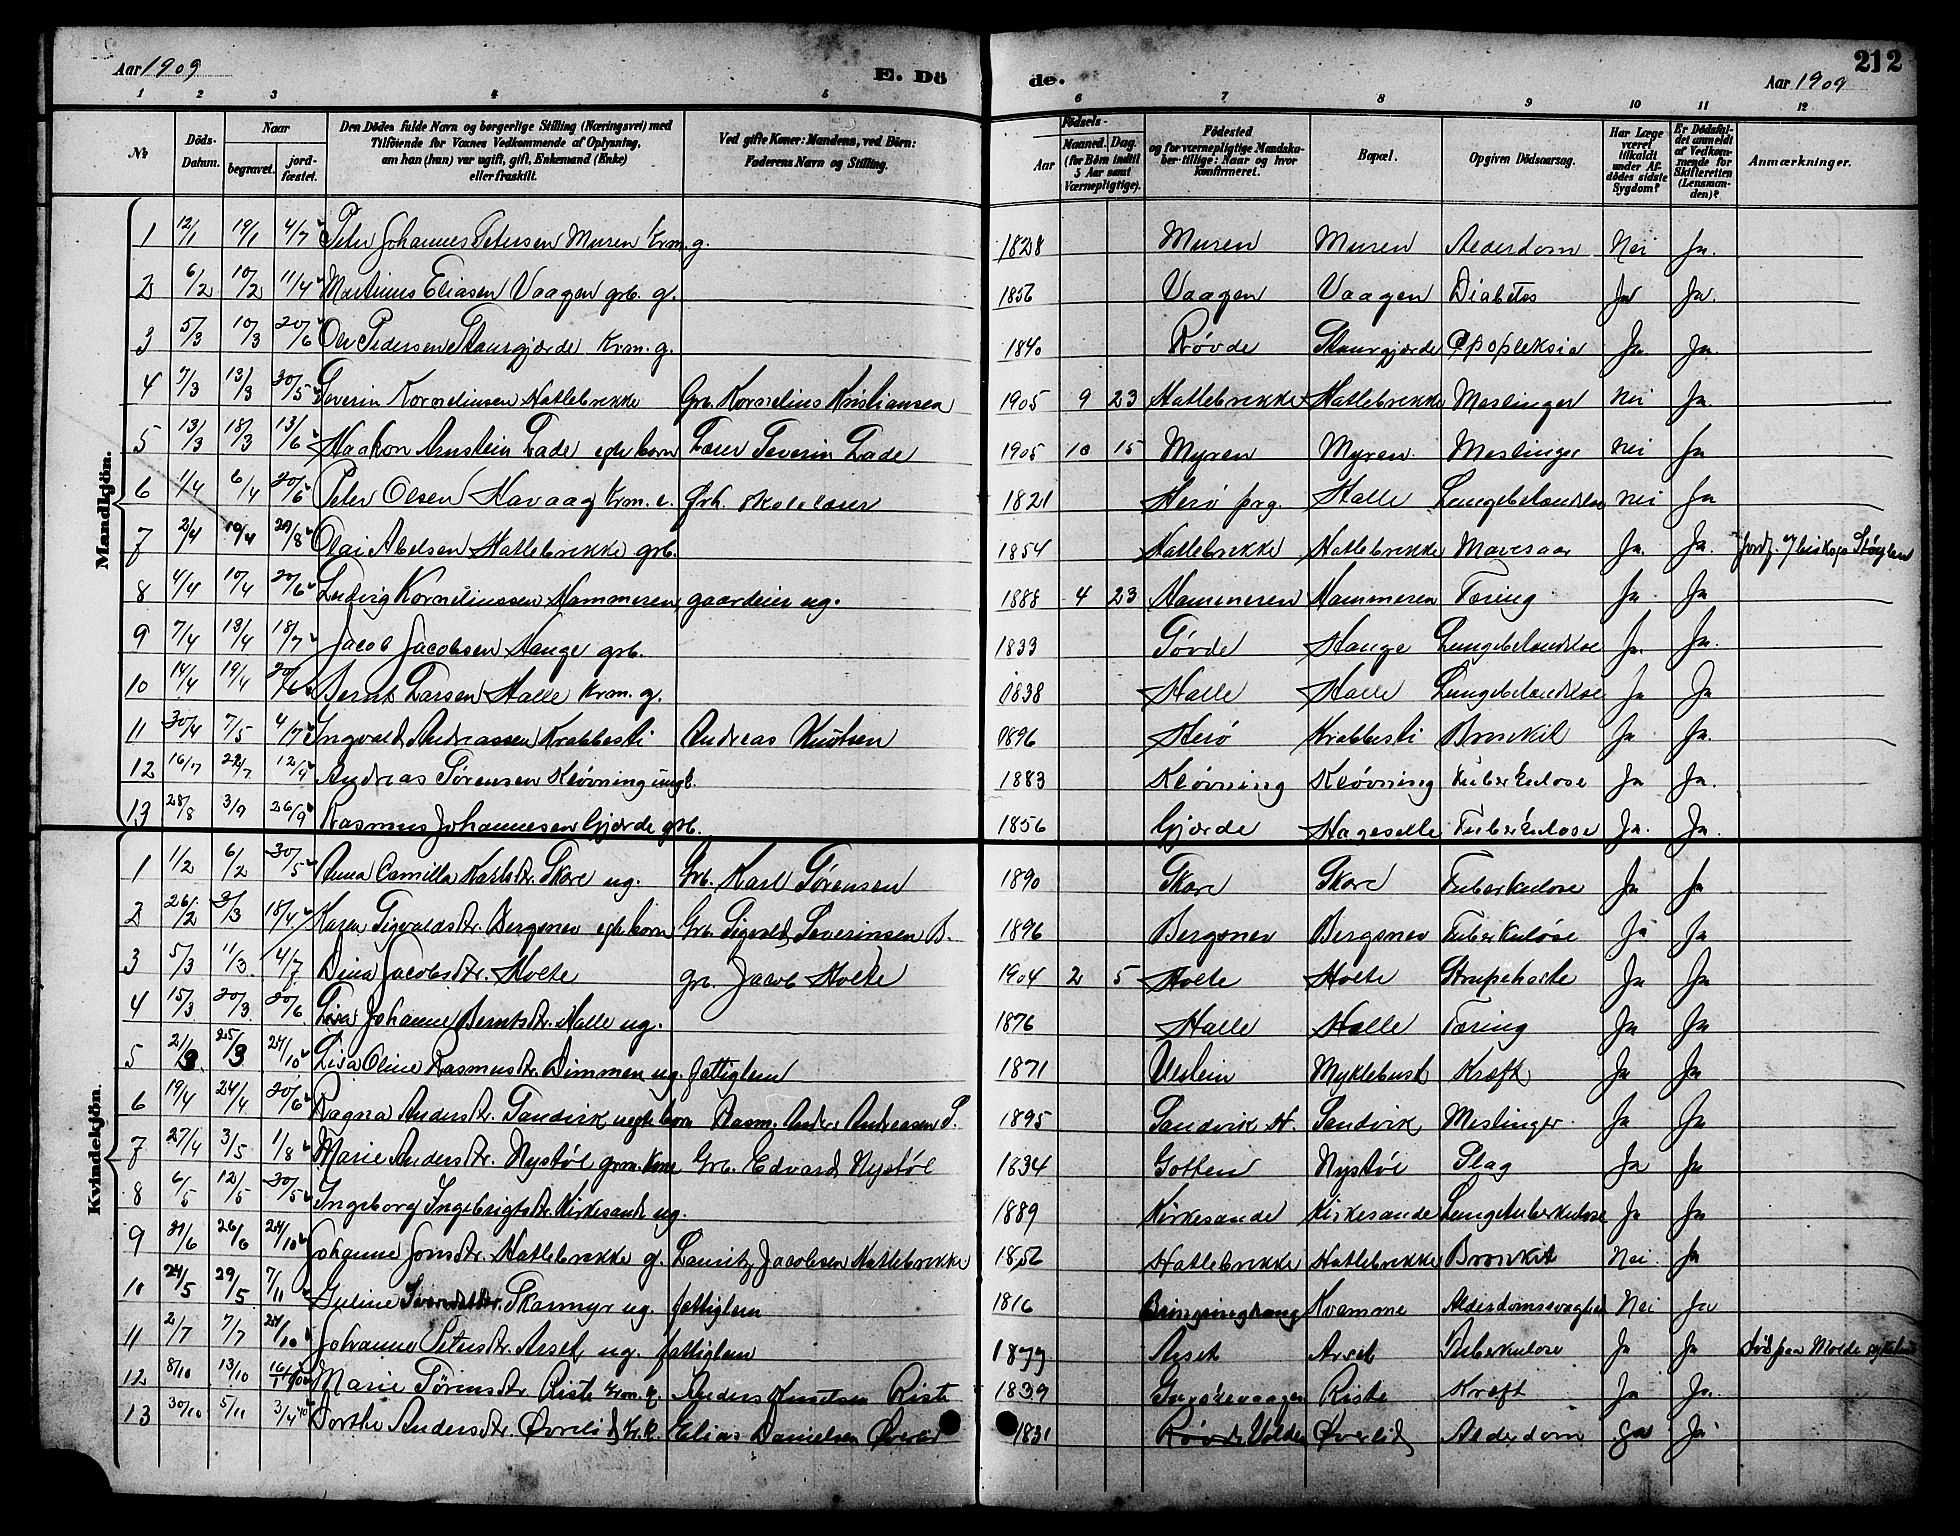 Aar 1909 E. Dö de. Aar 1909 212
1 2 3 4 5 6 7 8 9 10 11 12
No. Döds-Datum. Naar begravet. jord-fæstet. Den Dödes fulde Navn og borgerlige Stilling (Næringsvei) med Tilföiende for Voxnes Vedkommende af Oplysning, om han (hun) var ugift, gift, Enkemand (Enke) eller fraskilt. Ved gifte Koner: Mandens, ved Börn: Faderens Navn og Stilling. Födsels- Aar Maaned. Dag. (for Börn indtil 5 Aar samt Værnepligtige). Födested og for værnepligtige Mandskaber tillige: Naar og hvor konfirmeret. Bopæl. Opgiven Dödsaarsag. Har Læge været tilkaldt under Afdödes sidste Sygdom? Er Dödsfaldet anmeldt af Vedkommende for Skifteretten (Lensmanden)? Anmærkninger.
Mandkjön.
1 12/1 19/1 4/7 Peter Johannes Petersen Muren Krm. g. 1828 Muren Muren Alderdom Nei Ja.
2 6/2 10/2 11/4 Martinus Eliasen Vaagen grb. g. 1856 Vaagen Vaagen Diabetes Ja Ja.
3 5/3 10/3 20/6 Ole Pedersen Skaurgjærde Krm. g. 1840 Røvde Skaurgjærde Apopleksia Ja Ja.
4 7/3 13/3 30/5 Severin Korneliusen Hatlebrekke Grb. Kornelius Kristiansen 1905 9 23 Hatlebrekke Hatlebrekke Meslinger Nei Ja.
5 13/3 18/3 13/6 Haakon Arnstein Lade egte barn Lærer Severin Lade 1905 10 15 Myren Myren. Meslinger Nei Ja
6 1/4 6/4 20/6 Peter Olsen Havaag Krm. e. 1821 Herø prg. Halle Lungebetændelse Nei Ja
7 2/4 10/4 29/8 Olai Abelsen Hatlebrekke grb. 1854 Hatlebrekke Hatlebrekke Mavesaar Ja. Ja. Jordf. af biskop Støylen
8 4/4 10/4 20/6 Ludvig Korneliussen Hammeren, gaardeier ug. 1888 4 23 Hammeren Hammeren Tæring Ja Ja
9 7/4 13/4 18/7 Jacob Jacobsen Hauge grb. 1833 Søvde Hauge Lungebetændelse Ja. Ja.
10 14/4 19/4 20/6 Bernt Larsen Halle Krm. g. 1838 Halle Halle Lungebetændelse Ja Ja
11 30/4 7/5 4/7 Ingvald Andreassen Krabbesti Andreas Knutsen 1896 Herø Krabbesti Bronkit Ja Ja.
12 16/7 22/7 12/9 Andreas Sørensen Kløvning 1883 Kløvning Kløvning Tuberkulose Ja Ja.
13 28/8 3/9 26/9 Rasmus Johannesen Gjærde grb. 1856 Gjærde Hageselle Tuberkulose Ja. Ja.
Kvindekjön.
1 1/2 6/2 30/5 Anna Camilla Karlsdr. Skare ug. Grb. Karl Sørensen 1890 Skare Skare Tuberkulose Ja Ja
2 26/2 3/3 18/4 Karen Sigvaldsdr. Bergsnev egte barn Grb. Sigvald Severinsen B. 1896 Bergsnev Bergsnev Tuberkuløse Ja Ja
3 5/3 11/3. 4/7 Dina Jacobsdr. Holte grb. Jacob Holte 1904 2 5 Holte Holte Strupehoste Ja Ja
4 15/3 20/3. 20/6. Johanne Berntsdr. Halle ug. 1876 Halle Halle Tæring Ja Ja
5 21/3. 25/3 24/10 Lisa Oline Rasmusdr. Dimmen ug. fattiglem 1871 Myklebust Kræft Ja Ja
6 19/4 24/4. 20/6 Ragna Andersdr. Sandvik uegte barn Rasm. Anders Andreasen S. 1895 Sandvik H. Sandvik Meslinger Ja Ja
7 27/4 3/5. 1/8 Marie Andersdr. Nystøl grm. Kone Grb. Edvard Nystøl 1834 Gotten Nystøl Slag Ja Ja
8 6/5 12/5 30/5 Ingeborg Ingebrigtsdr. Kirkesande ug. 1889 Kirkesande Kirkesande Lungetuberkulose Ja Ja
9 21/6 26/6 24/10 Johanne Jonsdr. Hatlebrekke g. Lauritz Jacobsen Hatlebrekke 1856 Hatlebrekke Hatlebrekke Bronkit Nei. Ja
10 24/5 29/5. 7/11 Guline Skarmyr ug. fattiglem 1816 Kvamme Alderdomssvaghed Nei Ja
11 2/7 7/7 24/10 Johanne Petersdr. Arset ug. fattiglem 1877 Arset Arset Tuberkulose Ja Ja Død paa Molde
12 8/10 13/10 Marie Sørensdr. Riste Krm. k. Anders Knutsen Riste 1839 Gurskevaagen Riste Kræft Ja Ja.
13 30/10 5/11 3/4 10 Dorthe Andersdr. Øvrelid Anders Elias Danielsen Øvrelid 1831 Volden Øvrelid Alderdom Ja